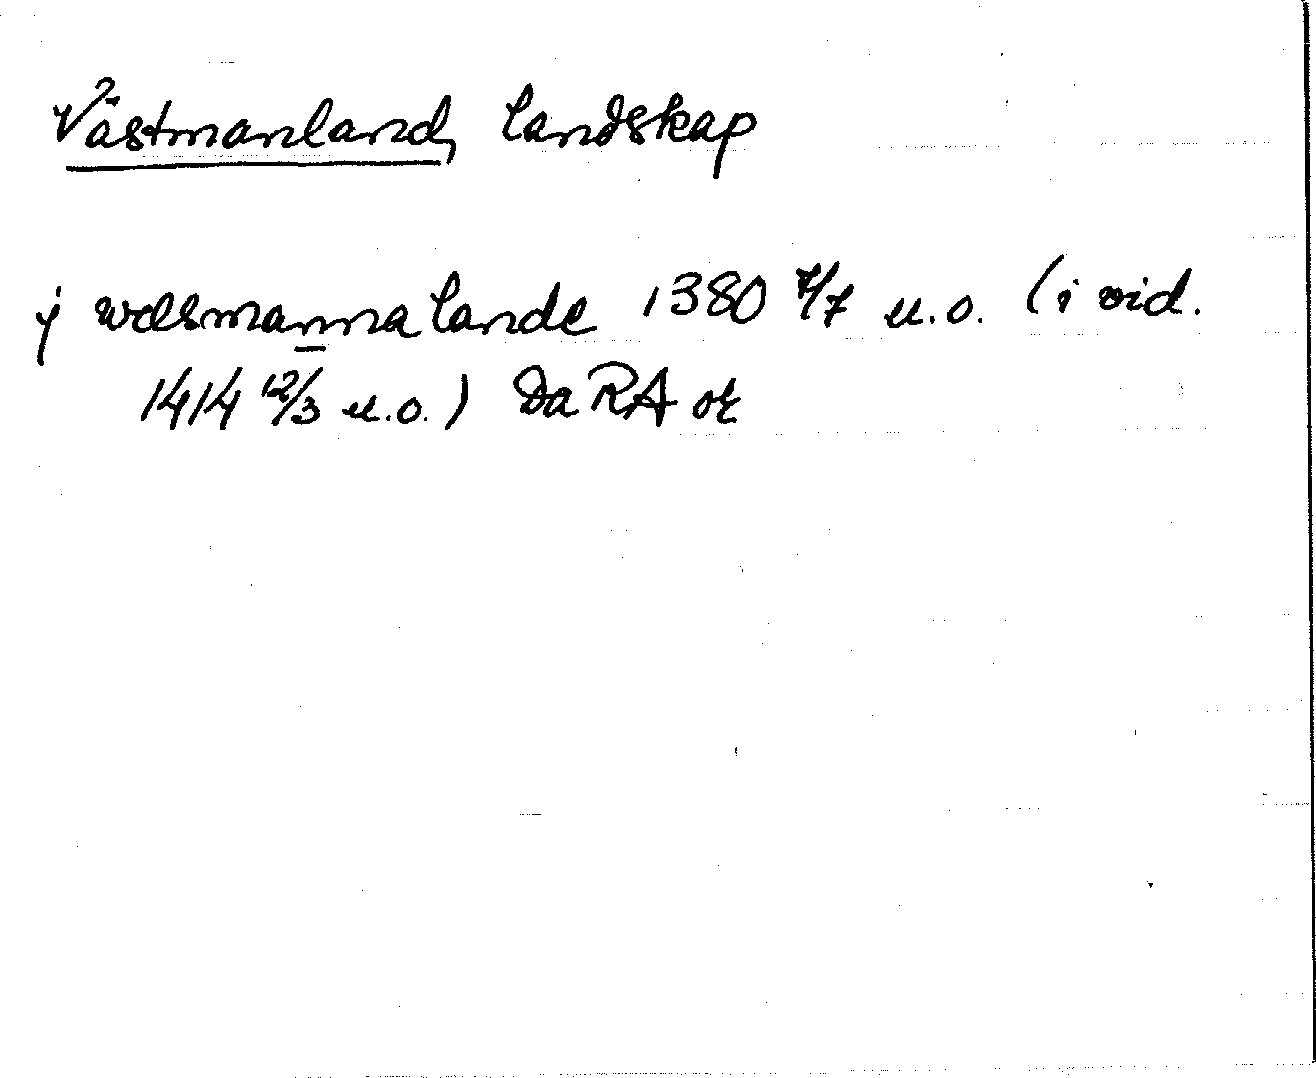 Västmanland, landskap
j wæsmannalande 1380 7/7 u.o. (i vid.
1414 12/3 u.o.) Da RA or